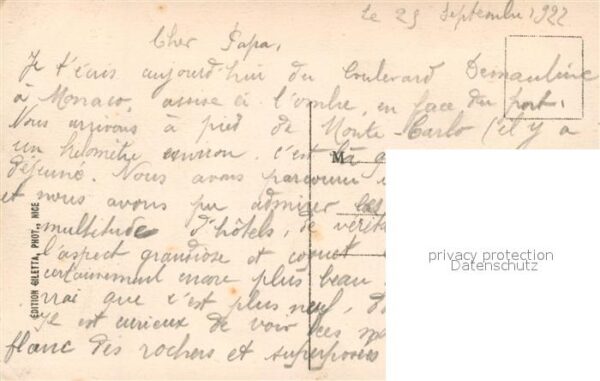 Le 25 Septembre 1922
Cher Papa,
Je t'écris aujourd'hui du boulevard
à Monaco, assise à l'ombre, en face du port.
Nous arrivons à pied de Monte-Carlo (il y a
un kilomètre environ. c'est là
déjeuné. Nous avons parcouru
et nous avons pu admirer
multitude d'hôtels, de
l'aspect grandiose et coquet
certainement encore plus beau
vrai que c'est plus neuf,
Je est curieux de voir ces
flanc des rochers et superposés
M
ÉDITION GILETTA, PHOT., NICE
privacy protection
Datenschutz